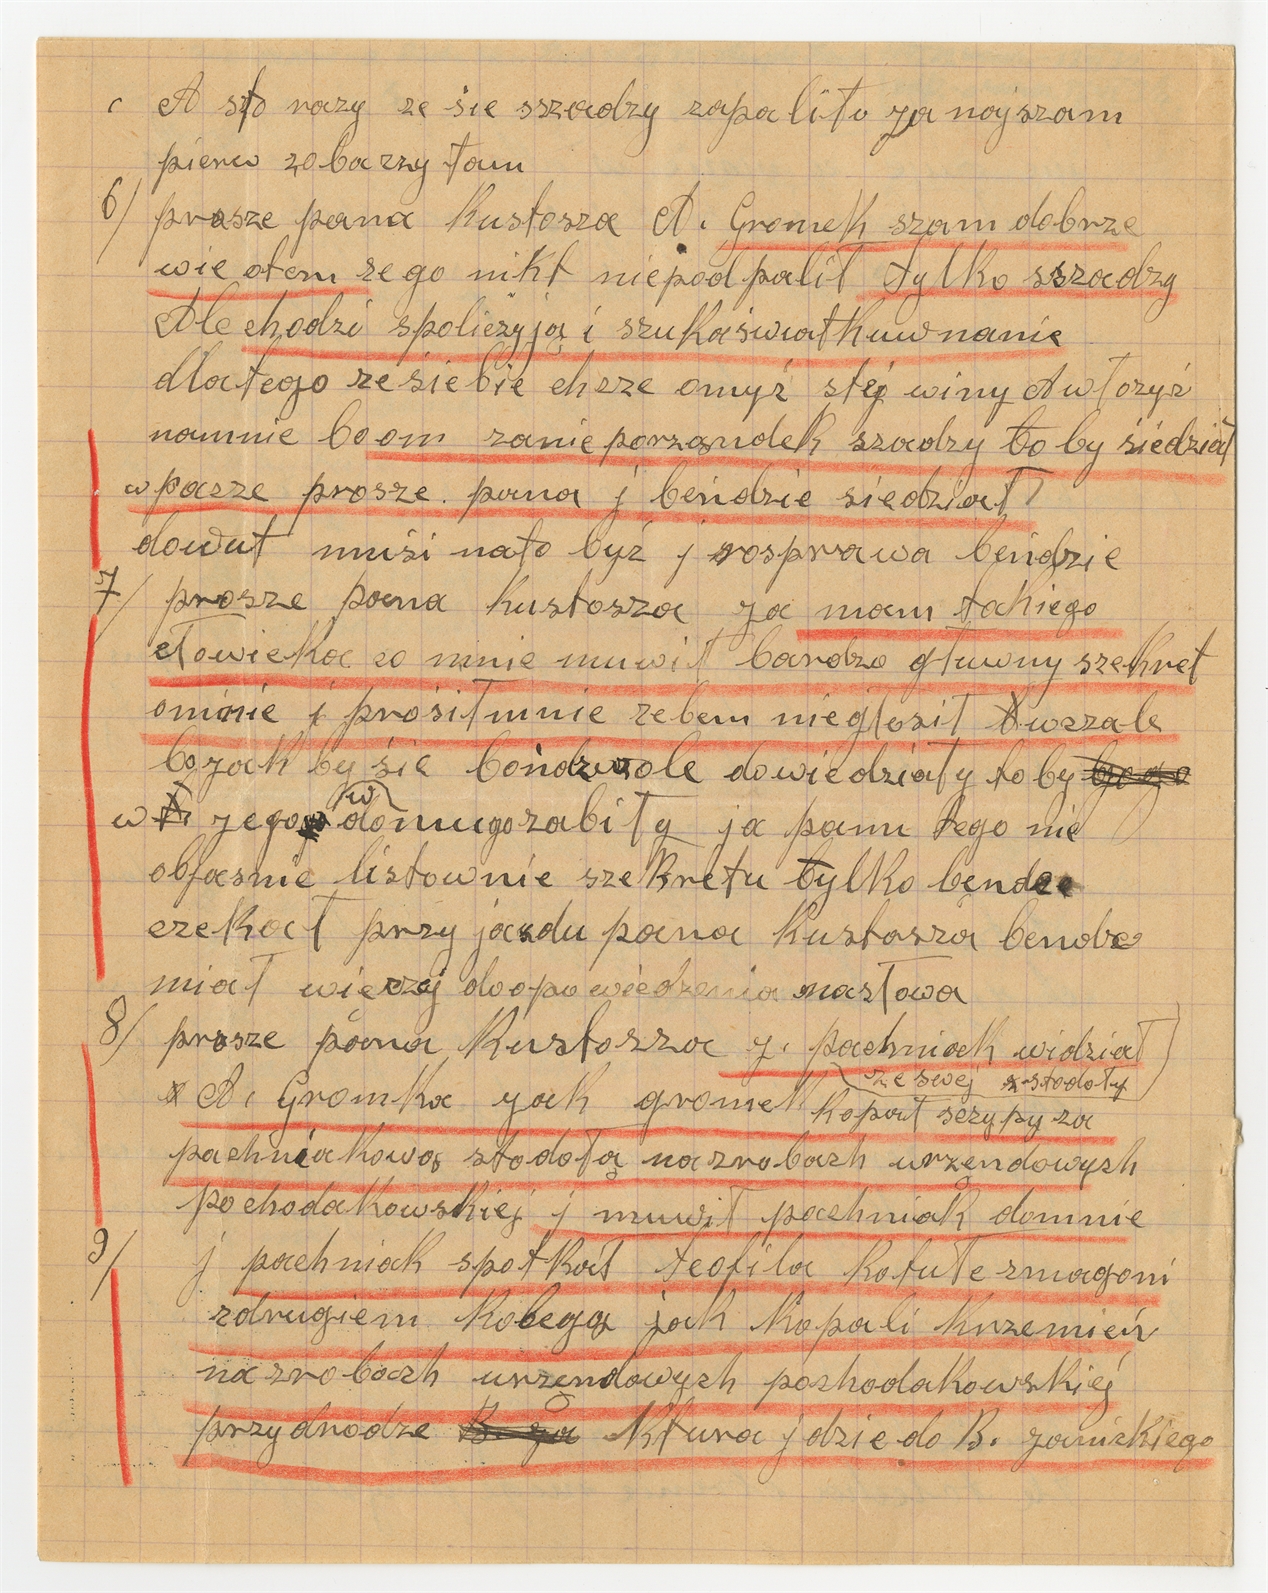 A sto razy ze sie sszadzy zapaliło ja najszam
pierw zobarzy łam
6/ prosze pana kustosza A. Gromek szam dobrze
wie otem zego nikt niepodpalił tylko sszadzy
Ale chodzi spolieżyją i szukaświatkuwnanie
dlatego zesiebie chzze omyź stéj winy Awłozyź
namnie boom zanieporzandek szadzy to by siedział
wpazze prosze pana j beńdzie siedział
dowut musi nato byź j rosprawa beńdzie
7/ prosze pana kustosza ja mam takiego
człowieka co mnie muwił bardzo głuwny szekret
omnie j prosiłmnie zebem niegłosił wczale
bojak by sie dowiedziały toby
w jego w domugozabiły ja panu tego nie
objasnie listownie szekretu tylko bende
czekał przyjazdu pana kustosza bende
miał wiezzej doopowiedzenia nasłowa
8/ prosze pana Kustosza j. pachniak widział
ze swej stodoły
A. Gromka jak gromek kopał sczypy za
pachniakową stodołą nazrobach urzendowych
pochodakowskiej j muwił pachniak domnie
9/ j pachniak spotkał teofila kotułe zmagoni
zdrugiem kolegą jak kopali krzemień
nazrobach urzendowych pozhodakowskiéj
przydrodze ktura jdzie do B. janickiego